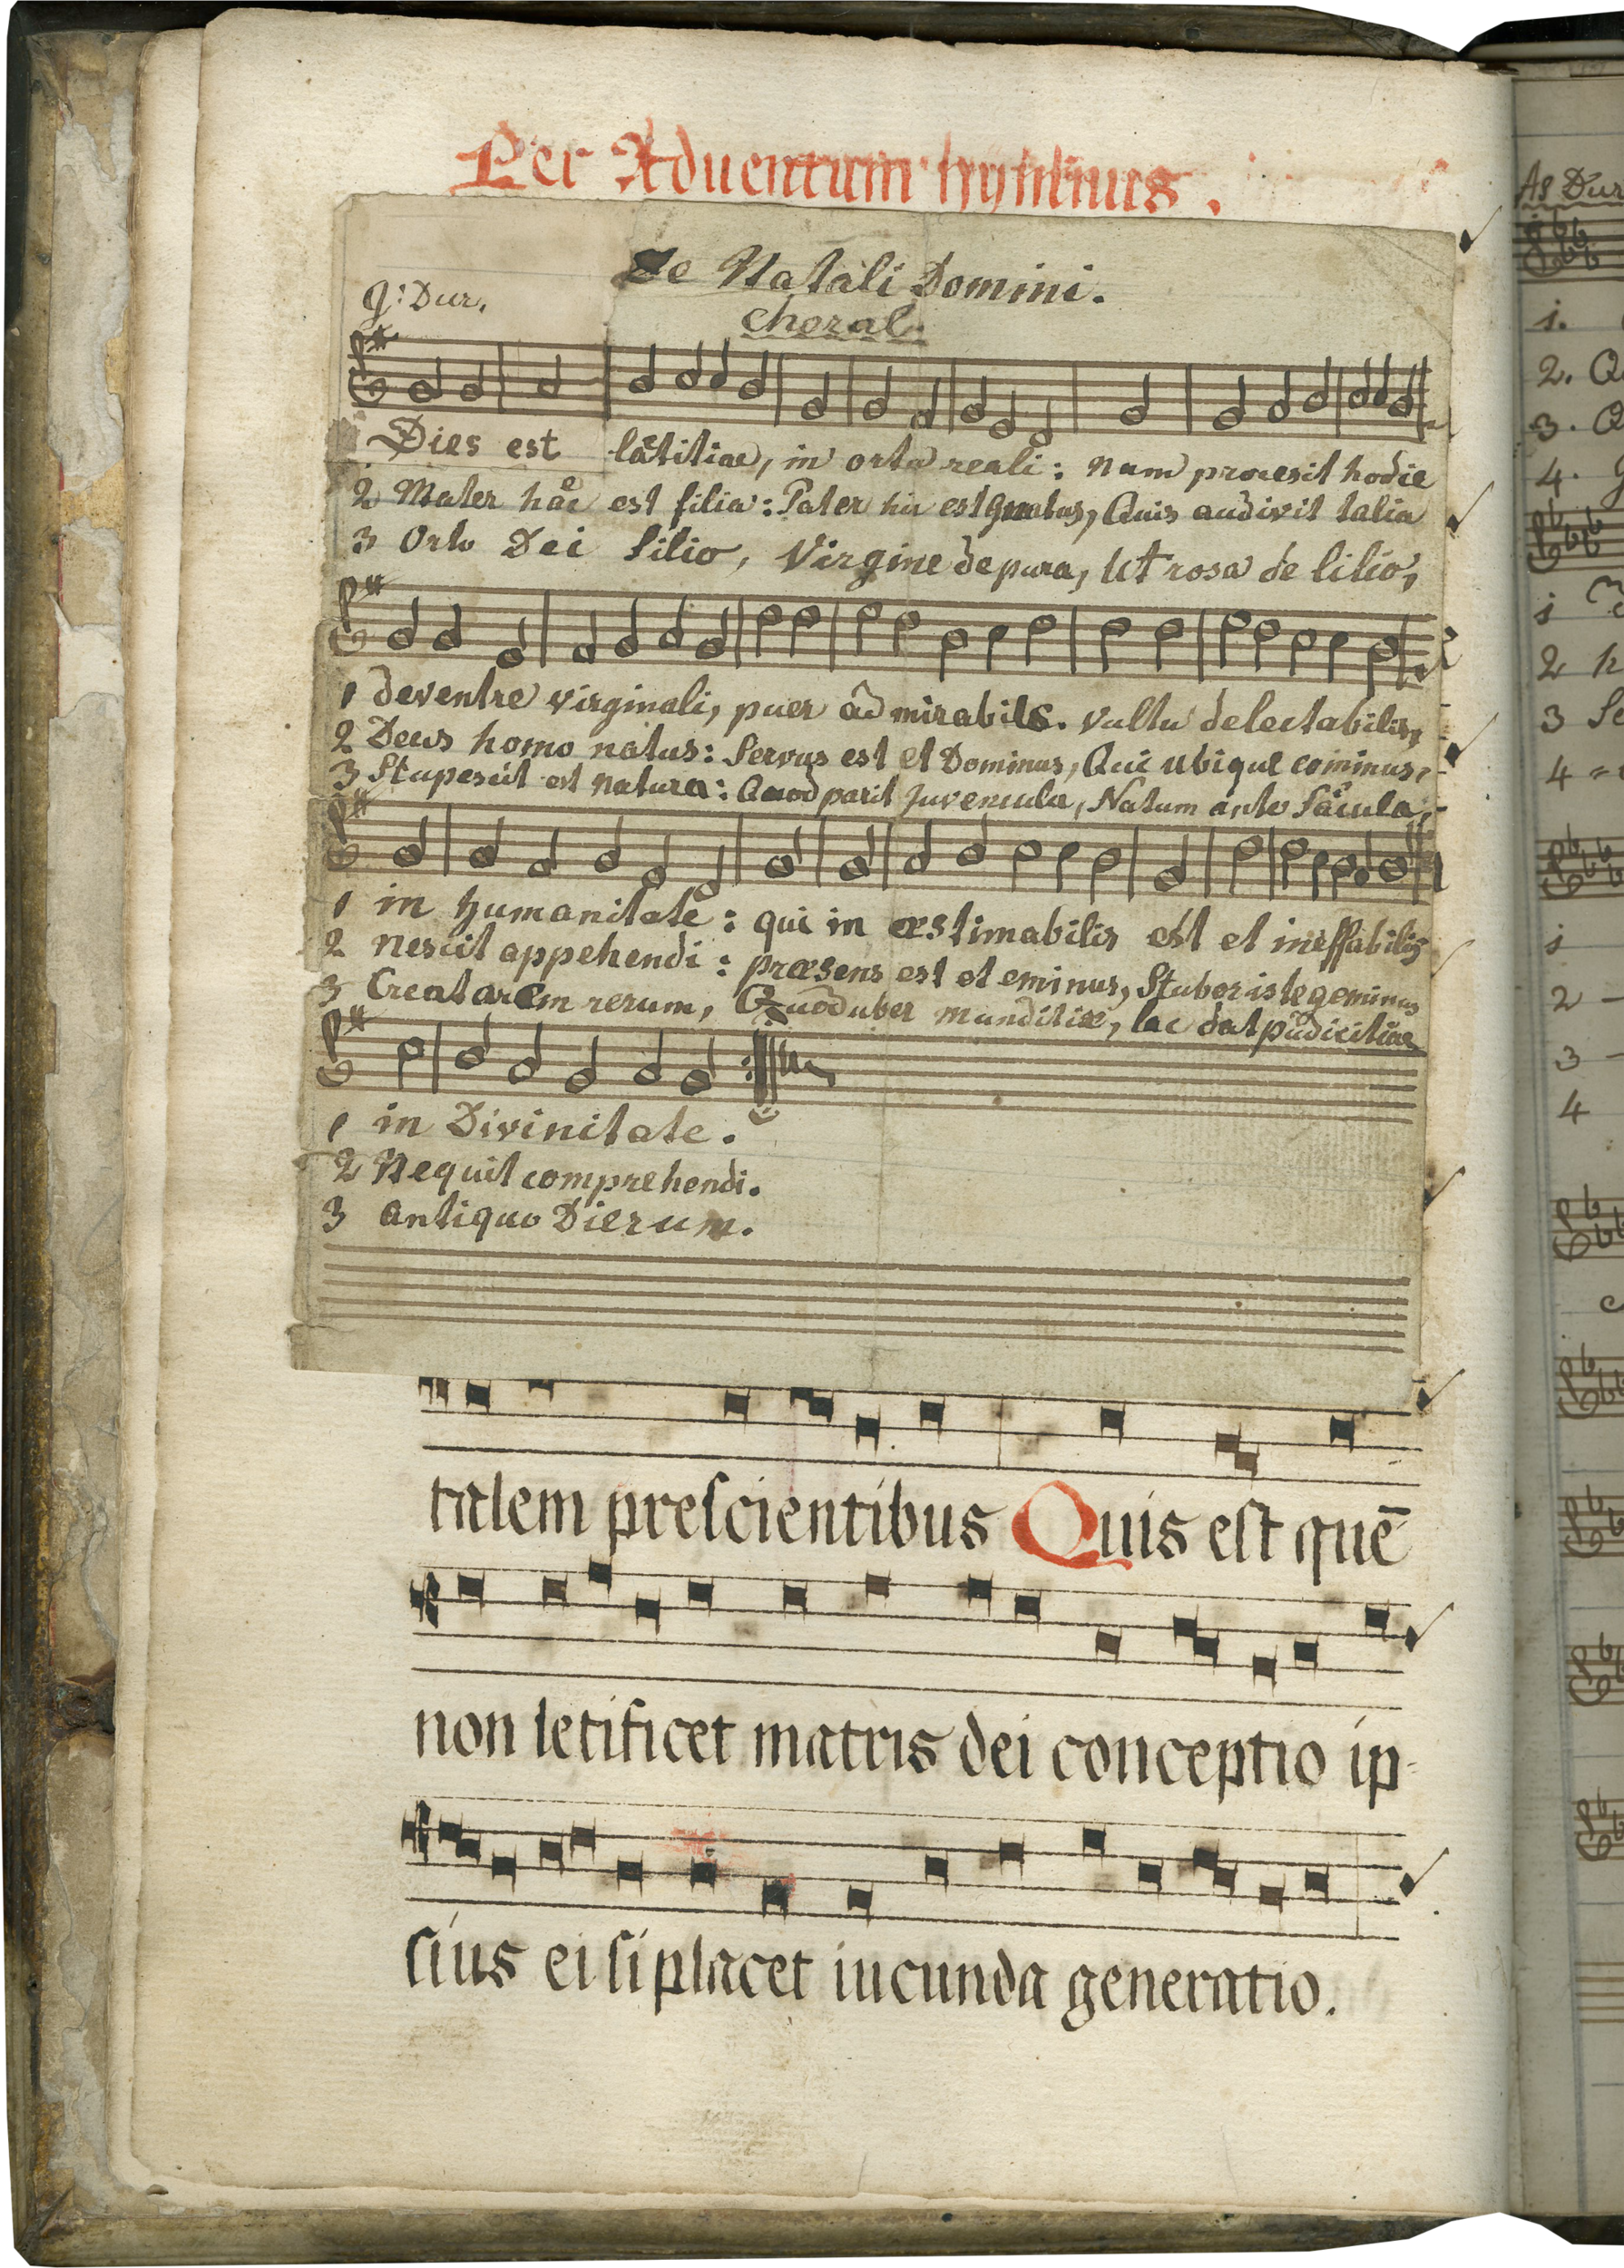 Per Adventum hymnus.
De Natali Domini.
g: Dur.
Choral.
Dies est lætitiae, in orta reali: nam procesit hodie
2 Mater haec est filia: Pater hic est gnatus, Quis audivit talia
3 Orto Dei filio, Virgine de pura, Ut rosa de lilio,
1 de ventre virginali, puer admirabilis. vultu delectabilis,
2 Deus homo natus: Servus est et Dominus, Qui ubique cominus,
3 Stupescit est natura: Quod parit juvencula, Natum ante sæcula,
1 in humanitate: qui in æstimabilis est et ineffabilis
2 nescit appehendi: præsens est et eminus, Stubor iste geminus
3 Creatarem rerum, Quod uber munditiæ, lac dat pudicitiae
1 in Divinitate.
2 Nequit comprehendi.
3 antiquo Dierum.
talem prescientibus Quis est quē
non letificet matris dei conceptio ip-
sius ei si placet iucunda generatio.
As Dur
1.
2. Q
3. Q
4.
1
2 h
3 Se
4
1
2
3
4